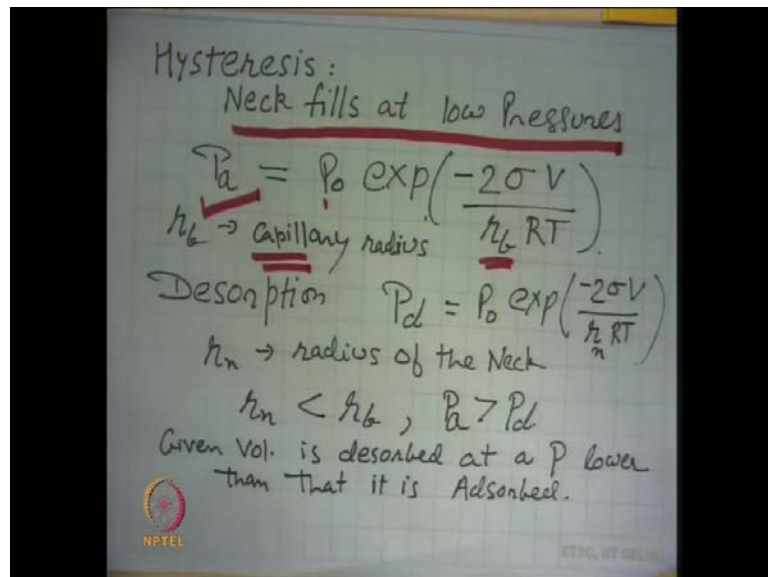 Hysteresis :
Neck fills at low Pressures
Pa = P₀ exp(-2σV / r_b RT).
r_b → Capillary radius
Desorption P_d = P₀ exp(-2σV / r_n RT)
r_n → radius of the Neck
r_n < r_b , Pa > Pd
Given Vol. is desorbed at a P lower
than that it is Adsorbed.
NPTEL
ETSC, IIT DELHI